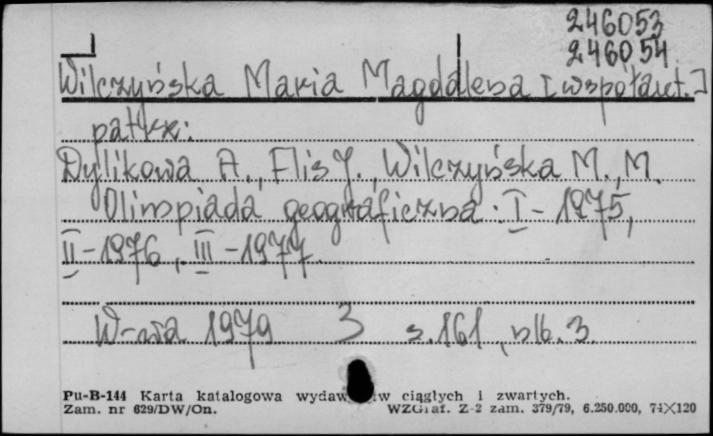 246053
246054
Wilczyńska Maria Magdalena [współaut.]
patrz:
Dylikowa A., Flis J., Wilczyńska M., M.
Olimpiada geograficzna : I - 1975,
II - 1976, III - 1977.
W-wa 1979 3 s. 161, nlb. 3.
Pu-B-144 Karta katalogowa wydaw w ciągłych i zwartych.
Zam. nr 629/DW/On. WZGraf. Z-2 zam. 379/79, 6.250.000, 74×120